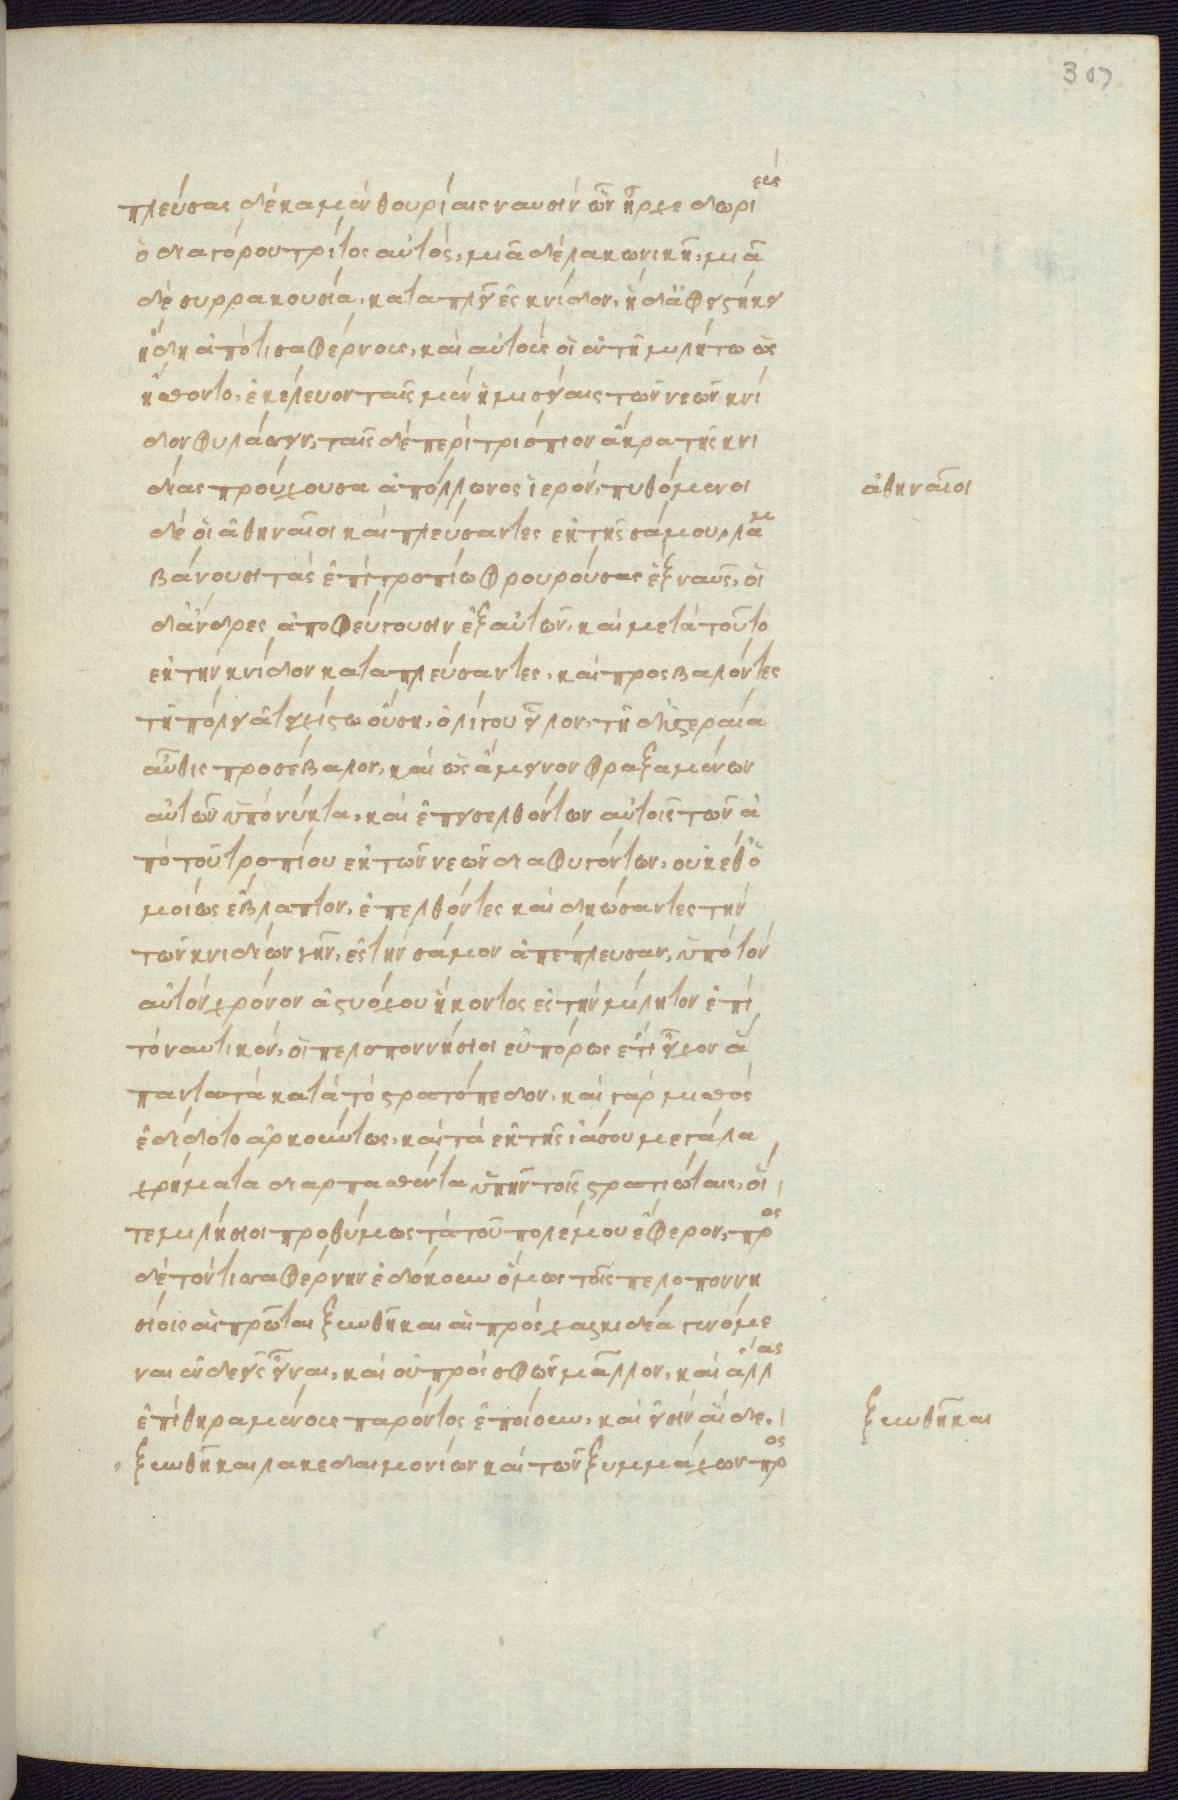 πλεύσας δέκα μὲν θουρίαις ναυσὶν ὧν ἦρχε δωριεὺς
ὁ διαγόρου τρίτος αὐτός, μιᾶ δὲ λακωνικῆ, μιᾶ
δὲ συρρακουσία, καταπλεῖ ἐς κνίδον, ἡ δ' ἀφειστήκει
ἤδη ἀπὸ τισαφέρνους, καὶ αὐτοὺς οἱ ἐν τῆ μιλήτω ὡς
ἤσθοντο, ἐκέλευον ταῖς μὲν ἡμισείαις τῶν νεῶν κνί
δον φυλάσσειν, ταῖς δὲ περὶ τριόπιον ἄκρα τῆς κνι
δίας προύχουσα ἀπόλλωνος ἱερόν, πυθόμενοι
ἀθηναῖοι
δὲ οἱ ἀθηναῖοι καὶ πλεύσαντες ἐκ τῆς σάμου, λαμ
βάνουσι τὰς ἐπὶ τροπίω φρουρούσας ἓξ ναῦς, οἱ
δ' ἄνδρες ἀποφεύγουσιν ἐξ αὐτῶν, καὶ μετὰ τοῦτο
ἐκ τὴν κνίδον καταπλεύσαντες, καὶ προσβαλόντες
τῆ πόλει ἀτειχίστω οὔση, ὀλίγου εἷλον, τῆ δ' ὑστεραία
αὖθις προσέβαλον, καὶ ὡς ἄμεινον φραξαμένων
αὐτῶν ὑπὸ νύκτα, καὶ ἐπεισελθόντων αὐτοῖς τῶν ἀ
πὸ τοῦ τροπίου ἐκ τῶν νεῶν διαφυγόντων, οὐκέθ' ὁ
μοίως ἔβλαπτον, ἐπελθόντες καὶ δηώσαντες τὴν
τῶν κνιδίων γῆν, ἐς τὴν σάμον ἀπέπλευσαν, ὑπὸ τὸν
αὐτὸν χρόνον ἀστυόχου ἥκοντος ἐς τὴν μίλητον ἐπὶ
τὸ ναυτικόν, οἱ πελοποννήσιοι εὐπόρως ἔτι εἶχον ἅ
παντα τὰ κατὰ τὸ στρατόπεδον, καὶ γὰρ μισθὸς
ἐδίδοτο ἀρκούντως, καὶ τὰ ἐκ τῆς ἰάσου μεγάλα
χρήματα διαρπασθέντα ὑπῆν τοῖς στρατιώταις, οἵ
τε μιλήσιοι προθύμως τὰ τοῦ πολέμου ἔφερον, πρὸς
δὲ τὸν τισαφέρνην ἐδόκουν ὅμως τοῖς πελοποννη
σίοις αἱ πρῶται ξυνθῆκαι αἱ πρὸς χαλκιδέα γενόμε
ναι ἐνδεεῖς εἶναι, καὶ οὐ πρὸς σφῶν μᾶλλον, καὶ ἄλλας
ἐπὶ θηραμένους παρόντος ἐποίουν, καὶ εἰσὶν αἵδε,
ξυνθῆκαι
ξυνθῆκαι λακεδαιμονίων καὶ τῶν ξυμμάχων πρὸς